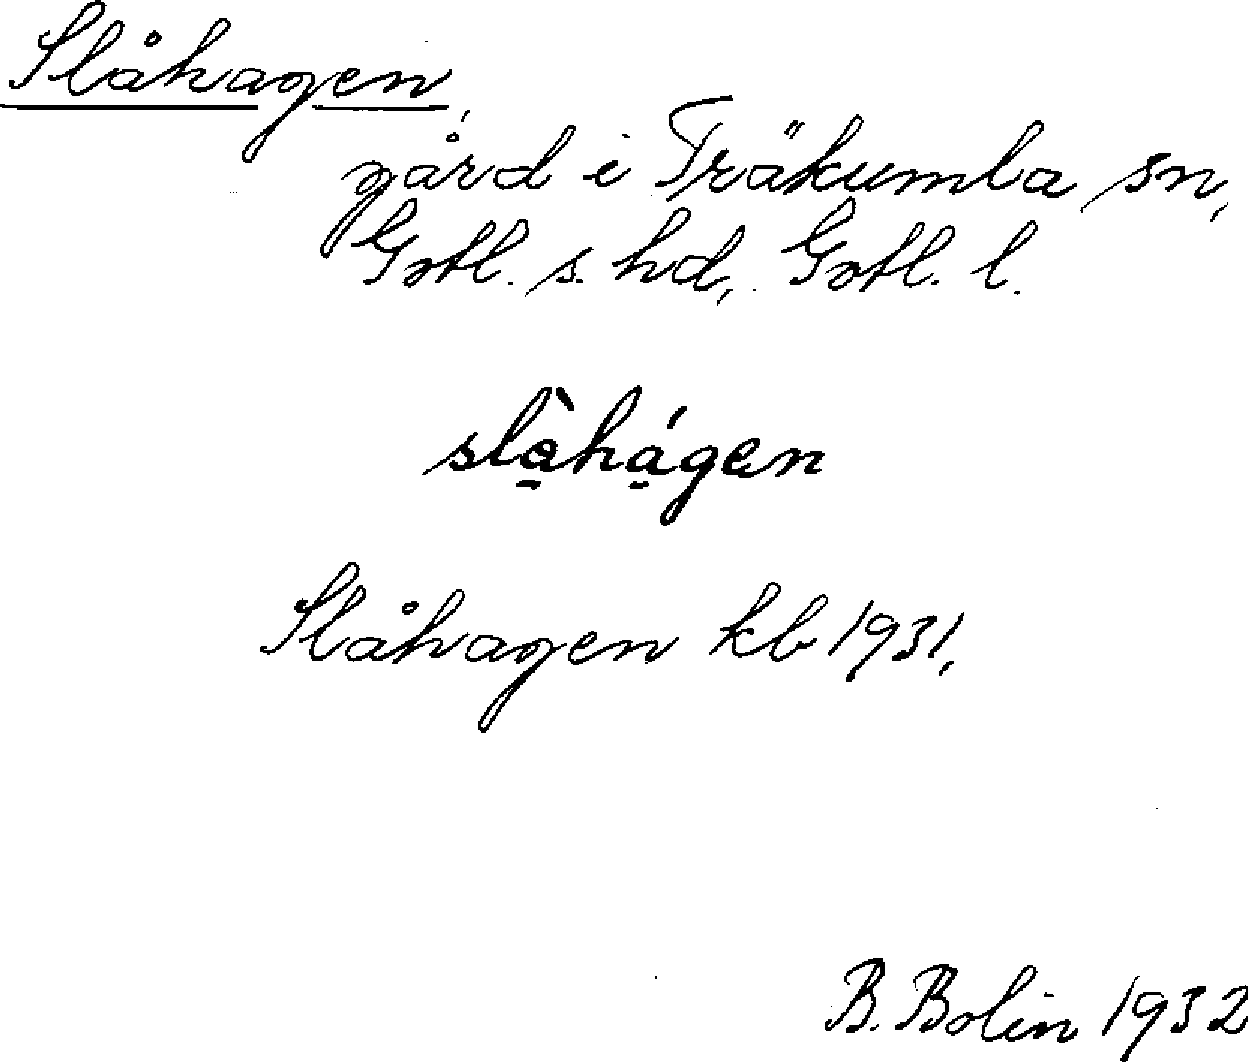 Slåhagen,
gård i Träkumla sn,
Gotl. s. hd, Gotl. l.
slạ̀hạ́gen
Slåhagen kb 1931,
B. Bolin 1932